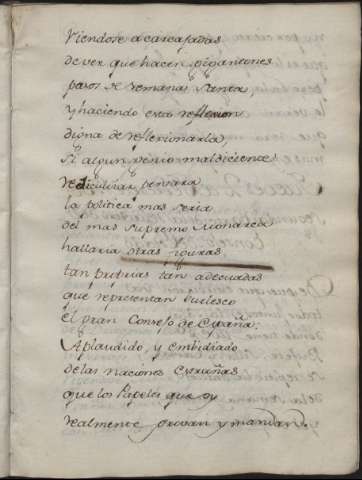 Viendose a carcajadas
de ver que hacen gigantones
pasos de semana santa,
y haciendo esta reflexion
digna de reflexionarla
si algun genio maldiciente
rediculizar pensara
la politica mas seria
del mas supremo Monarca
hallaria otras figuras
tan proprias tan adecuadas
que representan burlesco
el gran Consejo de España:
Aplaudido, y embidiado
de las naciones estrañas
que los Papeles que oy
realmente goviernan y mandan.